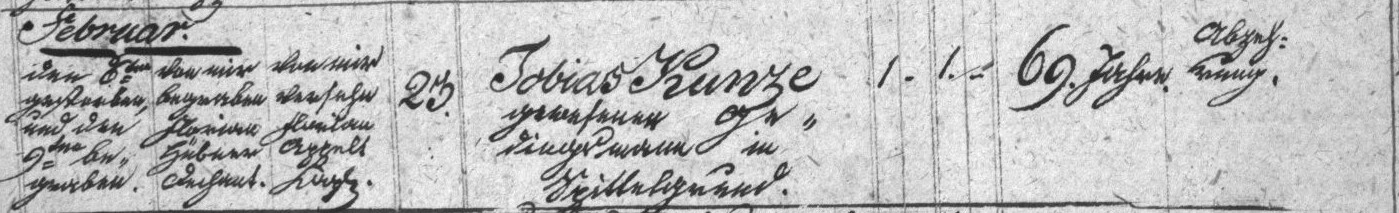 Februar.
den 6ten
gestorben,
und den
9ten be„
graben.
von mir
begraben
Florian
Hübner
Dechant.
von mir
versehn
Florian
Appelt
Kapl.
23.
Tobias Kunze
gewesener Ge„
dingsmann in
Spittelgrund.
1. 1.
69. Jahre.
Abzeh=
rung.